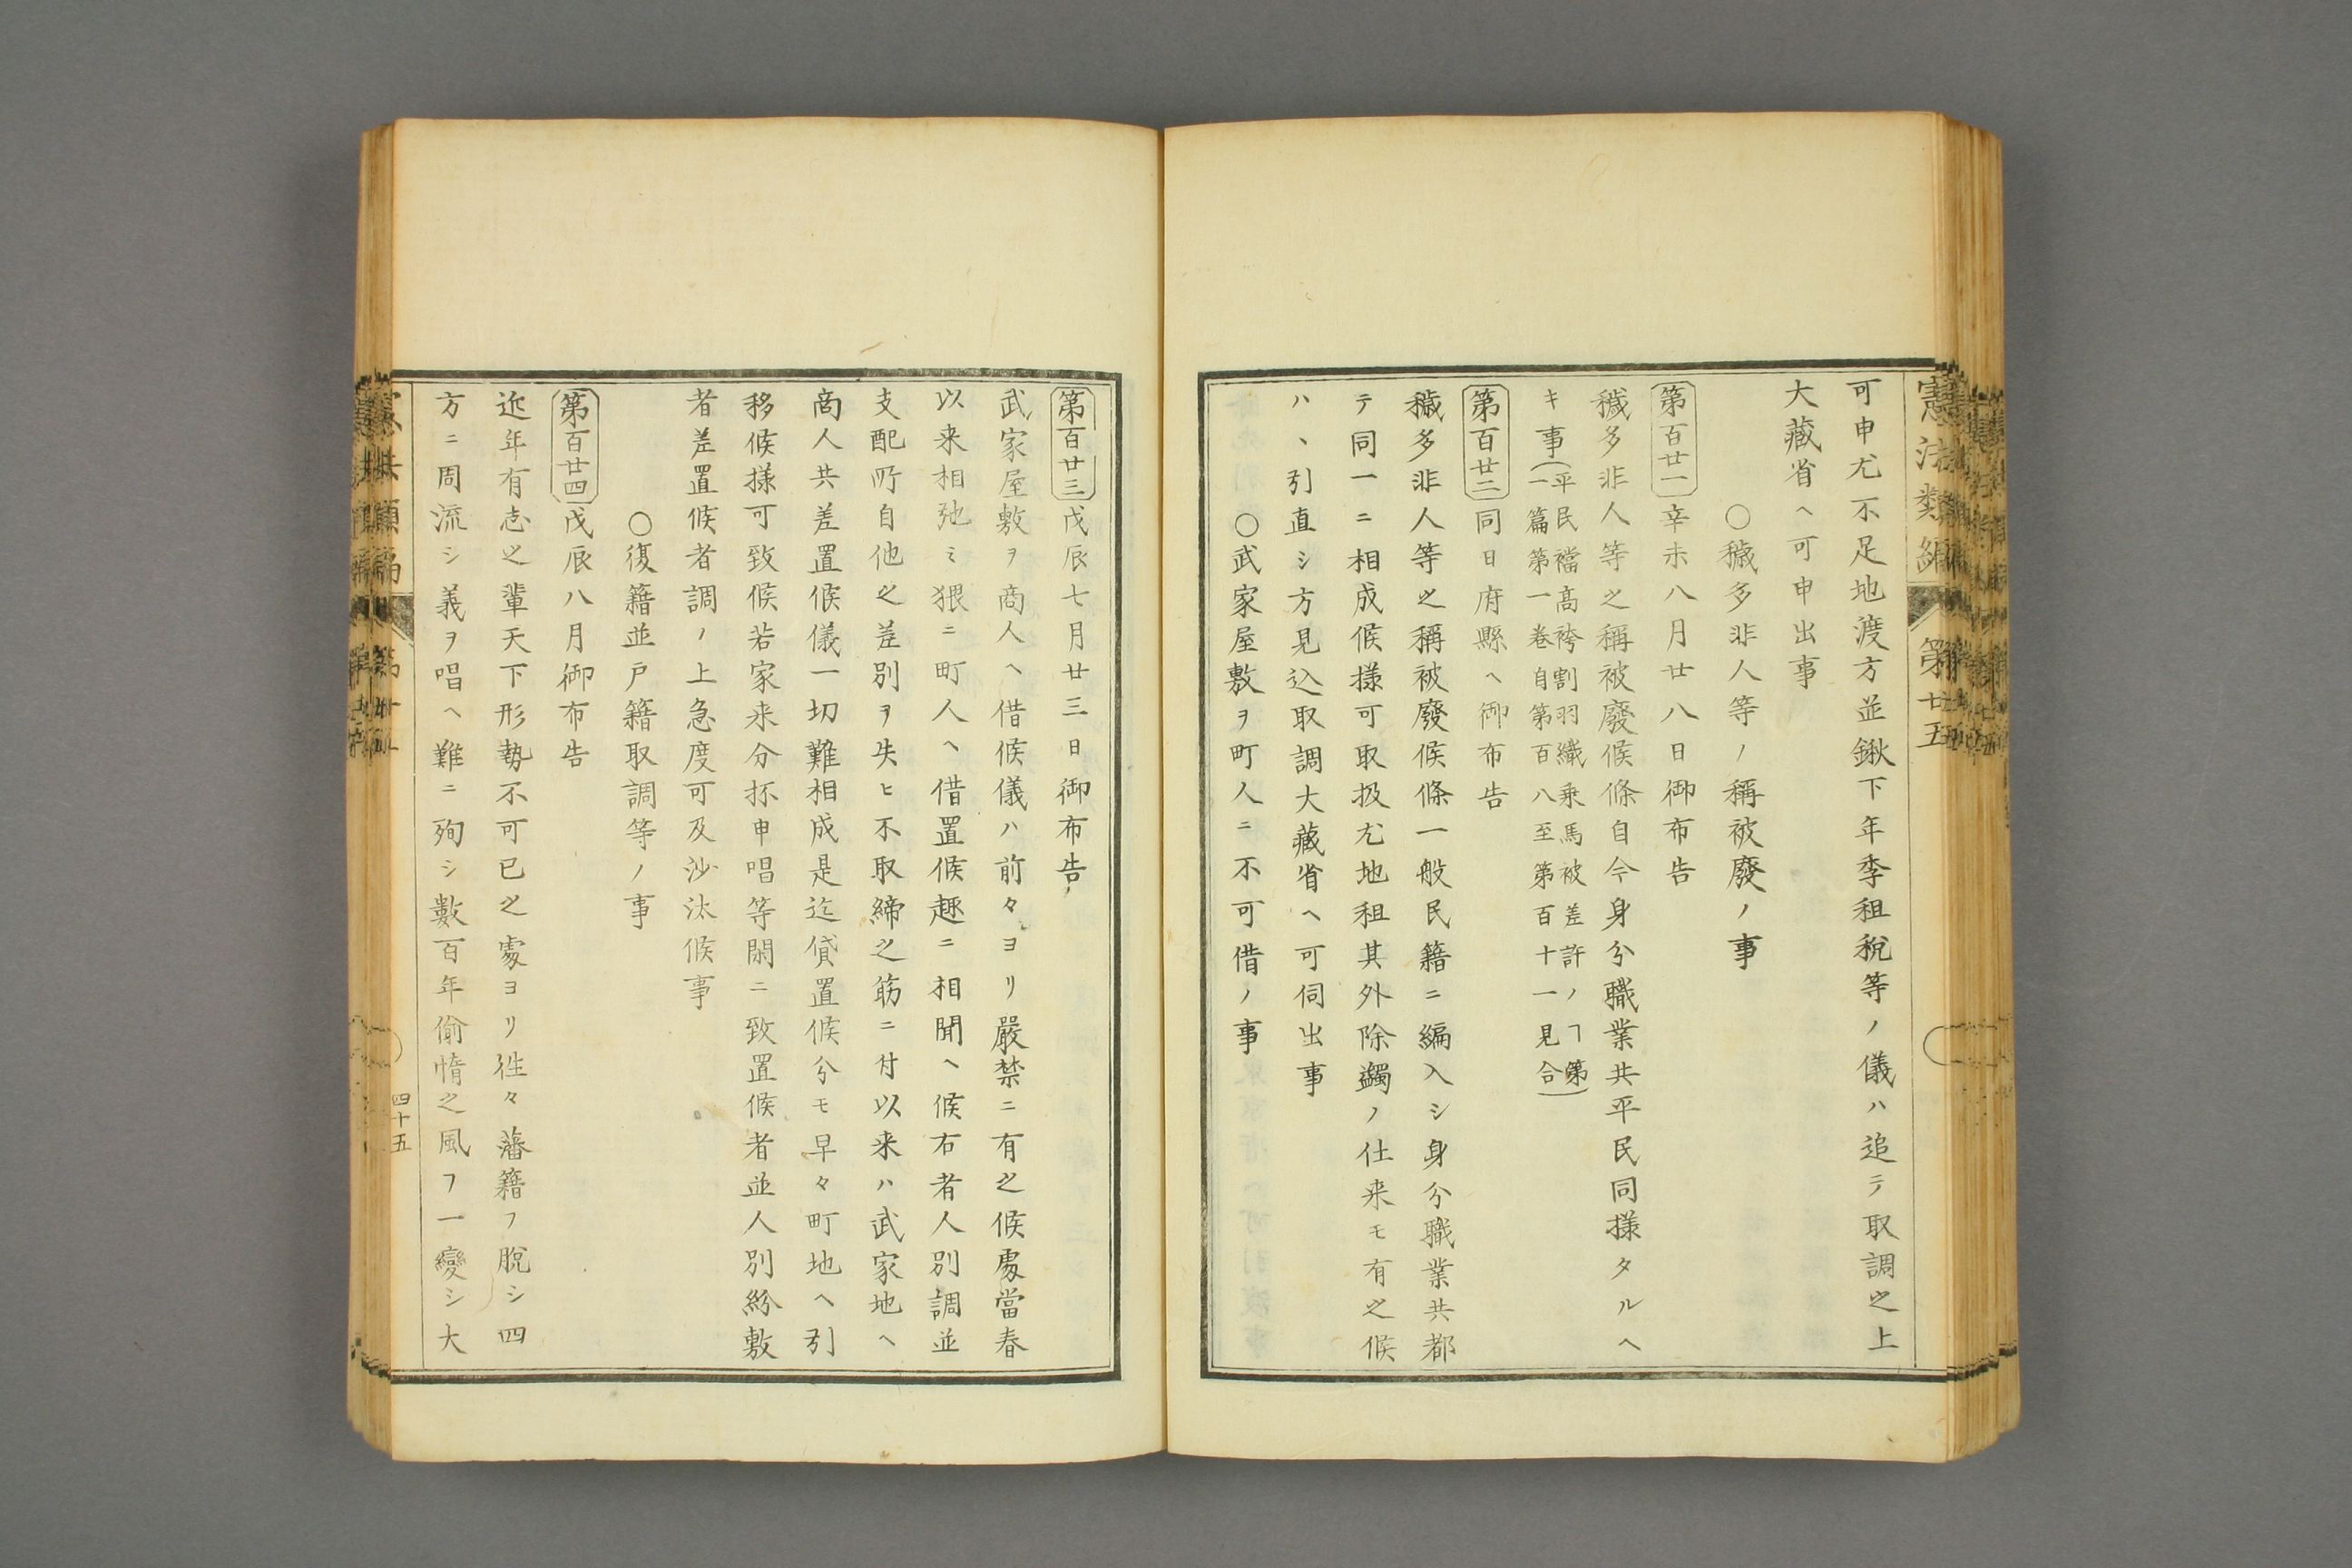 憲法類編 第廿五
可申尤不足地渡方並鍬下年季租税等ノ儀ハ追テ取調之上
大藏省ヘ可申出事
○穢多非人等ノ稱被廢ノ事
第百廿一 辛未八月廿八日御布告
穢多非人等之稱被廢候條自今身分職業共平民同様タルヘ
キ事(平民襠高袴割羽織乘馬被差許ノヿ第
一篇第一巻自第百八至第百十一見合)
第百廿二 同日府縣ヘ御布告
穢多非人等之稱被廢候條一般民籍ニ編入シ身分職業共都
テ同一ニ相成候様可取扱尤地租其外除蠲ノ仕来モ有之候
ハヽ引直シ方見込取調大藏省ヘ可伺出事
○武家屋敷ヲ町人ニ不可借ノ事
第百廿三 戊辰七月廿三日御布告ノ
武家屋敷ヲ商人ヘ借候儀ハ前々ヨリ嚴禁ニ有之候處當春
以来相弛ミ猥ニ町人ヘ借置候趣ニ相聞ヘ候右者人別調並
支配所自他之差別ヲ失ヒ不取締之筋ニ付以来ハ武家地ヘ
商人共差置候儀一切難相成是迄貸置候分モ早々町地ヘ引
移候様可致候若家来分抔申唱等閑ニ致置候者並人別紛敷
者差置候者調ノ上急度可及沙汰候事
○復籍並戸籍取調等ノ事
第百廿四 戊辰八月御布告
近年有志之輩天下形勢不可已之處ヨリ徃々藩籍ヲ脱シ四
方ニ周流シ義ヲ唱ヘ難ニ殉シ數百年偷惰之風ヲ一變シ大
四十五